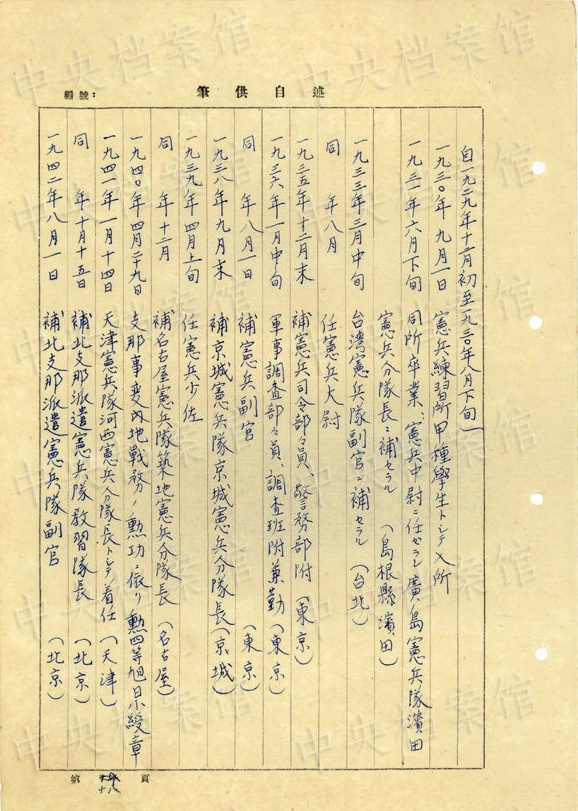 編號：
筆供自述
自一九二九年十二月初至一九三〇年八月下旬
一九三〇年九月一日 憲兵練習所甲種學生トシテ入所
一九三一年六月下旬 同所卒業、憲兵中尉ニ任ゼラレ廣島憲兵隊濱田
憲兵分隊長ニ補セラル (島根縣濱田)
一九三三年三月中旬 台湾憲兵隊副官ニ補セラル (台北)
同 年八月 任憲兵大尉
一九三五年十二月末 補憲兵司令部々員、警務部附 (東京)
一九三六年一月中旬 軍事調査部々員、調査班附兼勤 (東京)
同 年八月一日 補憲兵副官 (東京)
一九三八年九月末 補京城憲兵隊京城憲兵分隊長 (京城)
一九三九年四月上旬 任憲兵少佐
同 年十二月 補名古屋憲兵隊築地憲兵分隊長 (名古屋)
一九四〇年四月二十九日 支那事變内地戰務ノ勲功ニ依リ勲四等旭日小綬章
一九四一年一月十四日 天津憲兵隊河西憲兵分隊長トシテ着任 (天津)
同 年十月十五日 補北支那派遣憲兵隊教習隊長 (北京)
一九四二年八月一日 補北支那派遣憲兵隊副官 (北京)
第 十八 頁
中央档案馆